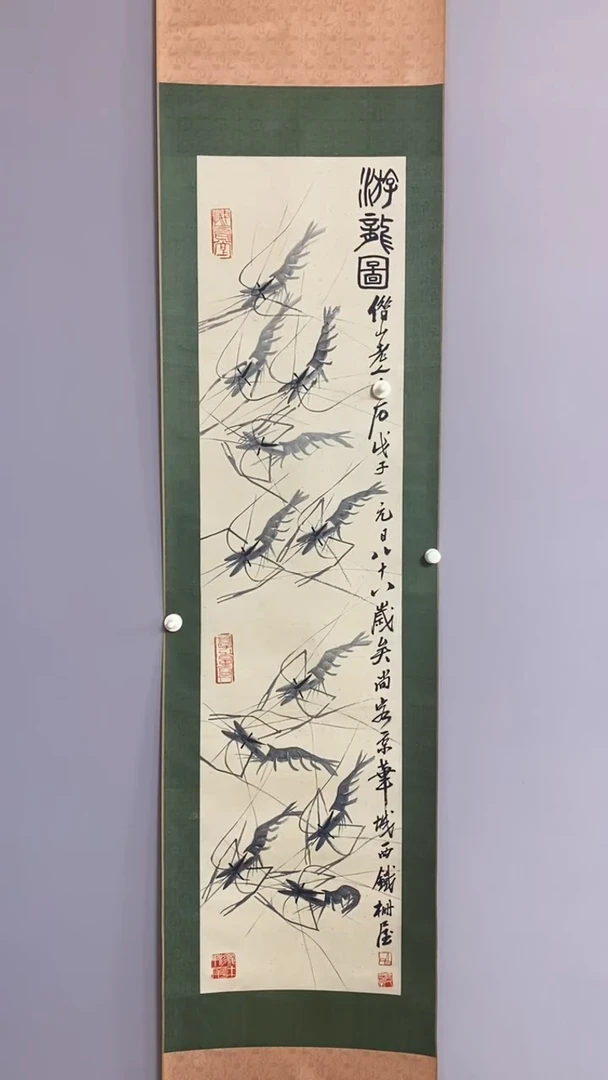 游龍圖
借山老人石戊子元日八十八歲矣尚客京華城西鐵柵屋